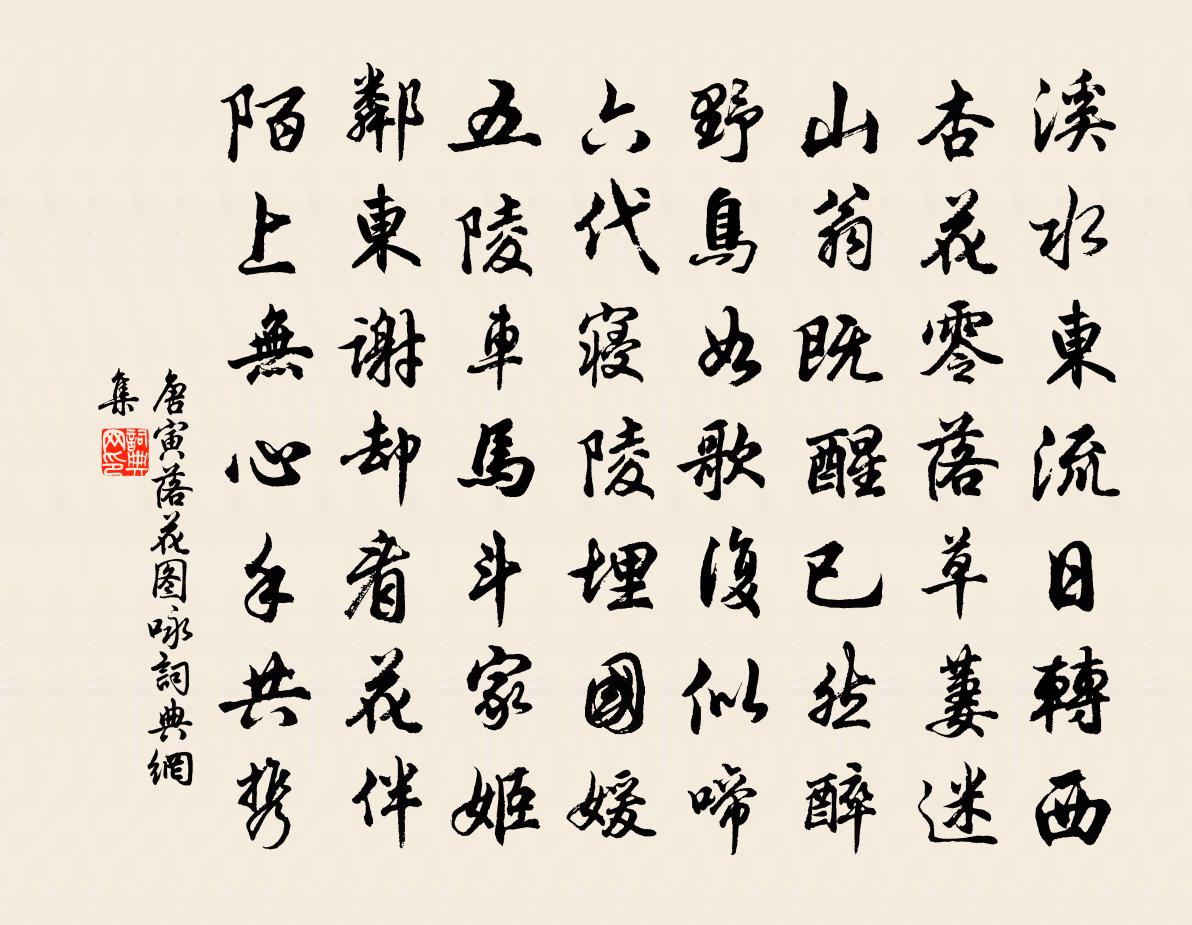 溪水東流日轉西
杏花零落草萋迷
山翁既醒已然醉
野鳥如歌復似啼
六代寢陵埋國媛
五陵車馬斗家姬
鄰東謝却看花伴
陌上無心手共携
唐寅落花图咏詞典網
集
詞典
网印